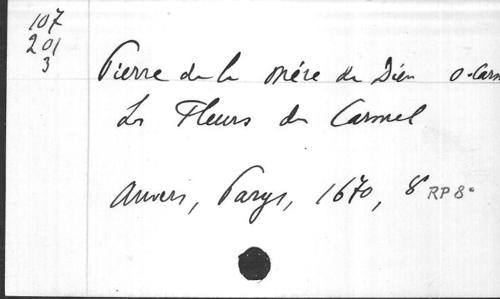 107
201
3
Pierre de la Mére de Dieu O. Carm
Les Fleurs du Carmel
Anvers, Parys, 1670, 8° RP 8°